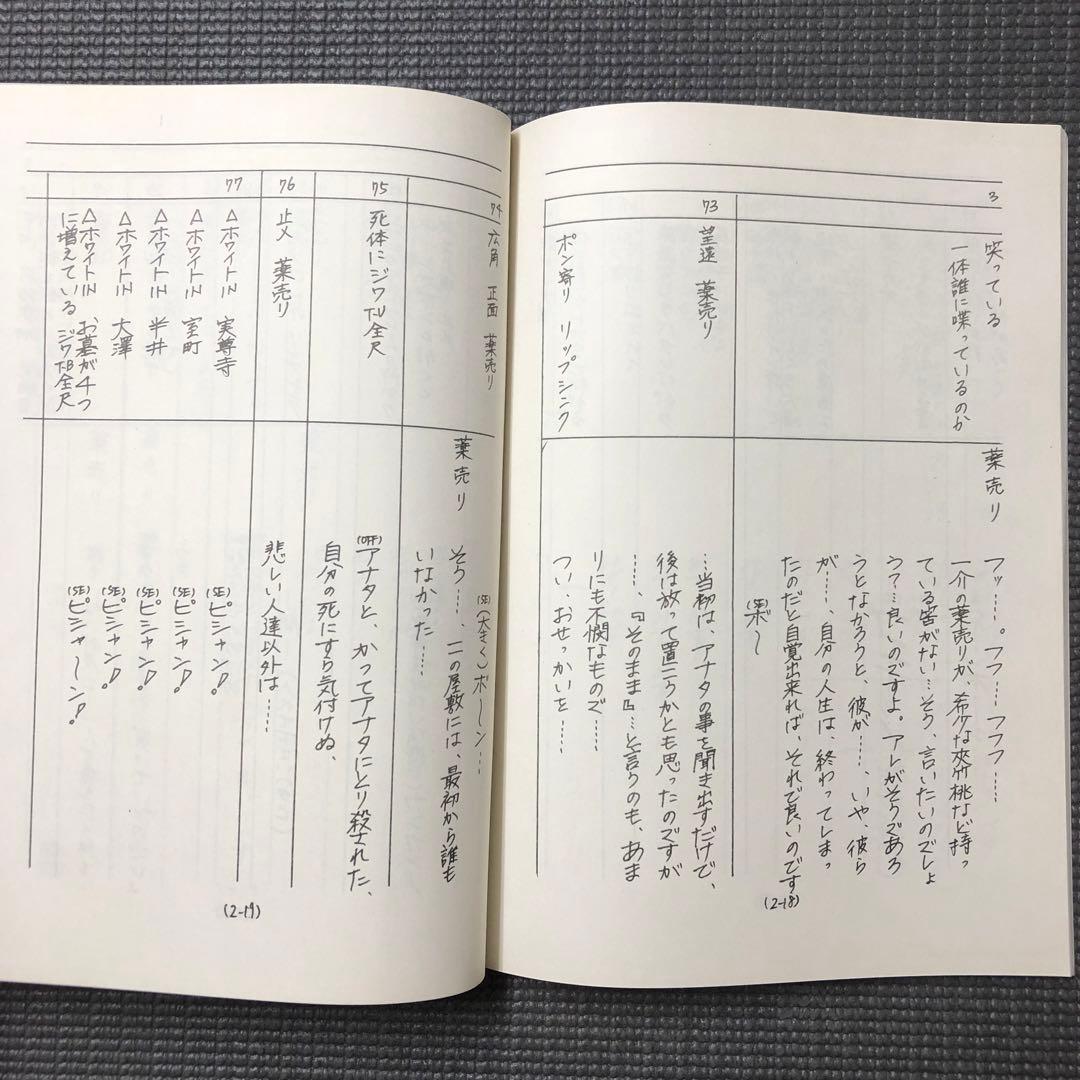 3
笑っている
一体誰に喋っているのか
薬売り
フッ……。フフ… フフフ……
一介の薬売りが、希少な夾竹桃など持っ
ている筈がない…そう、言いたいのズしょ
う?…良いのですよ。アレがそうであろ
うとなかろうと、彼が……、いや、彼ら
が……、自分の人生は、終わってしまっ
たのだと自覚出来れば、それで良いのです
(SE)ボ〜
(2-18)
73
望遠 薬売り
ポン寄り リップシンク
…当初は、アナタの事を聞き出すだけで、
後は放って置こうかとも思ったのですが
……、『そのまま』…と言うのも、あま
りにも不憫なもので……
つい、おせっかいを……
74
広角 正面 薬売り
(SE)(大きく)ボ〜ン…
薬売り
そう……、この屋敷には、最初から誰も
いなかった……
75
死体にジワT.U全尺
(OFF)アナタと、かつてアナタにとり殺された、
自分の死にすら気付けぬ、
76
止メ 薬売り
悲しい人達以外は……
77
△ホワイトIN 実尊寺
(SE)ピシャン!
△ホワイトIN 室町
(SE)ピシャン!
△ホワイトIN 半井
(SE)ピシャン!
△ホワイトIN 大澤
(SE)ピシャン!
△ホワイトIN お墓が4つ
に増えている ジワT.B全尺
(SE)ピシャ〜ン!
(2-19)